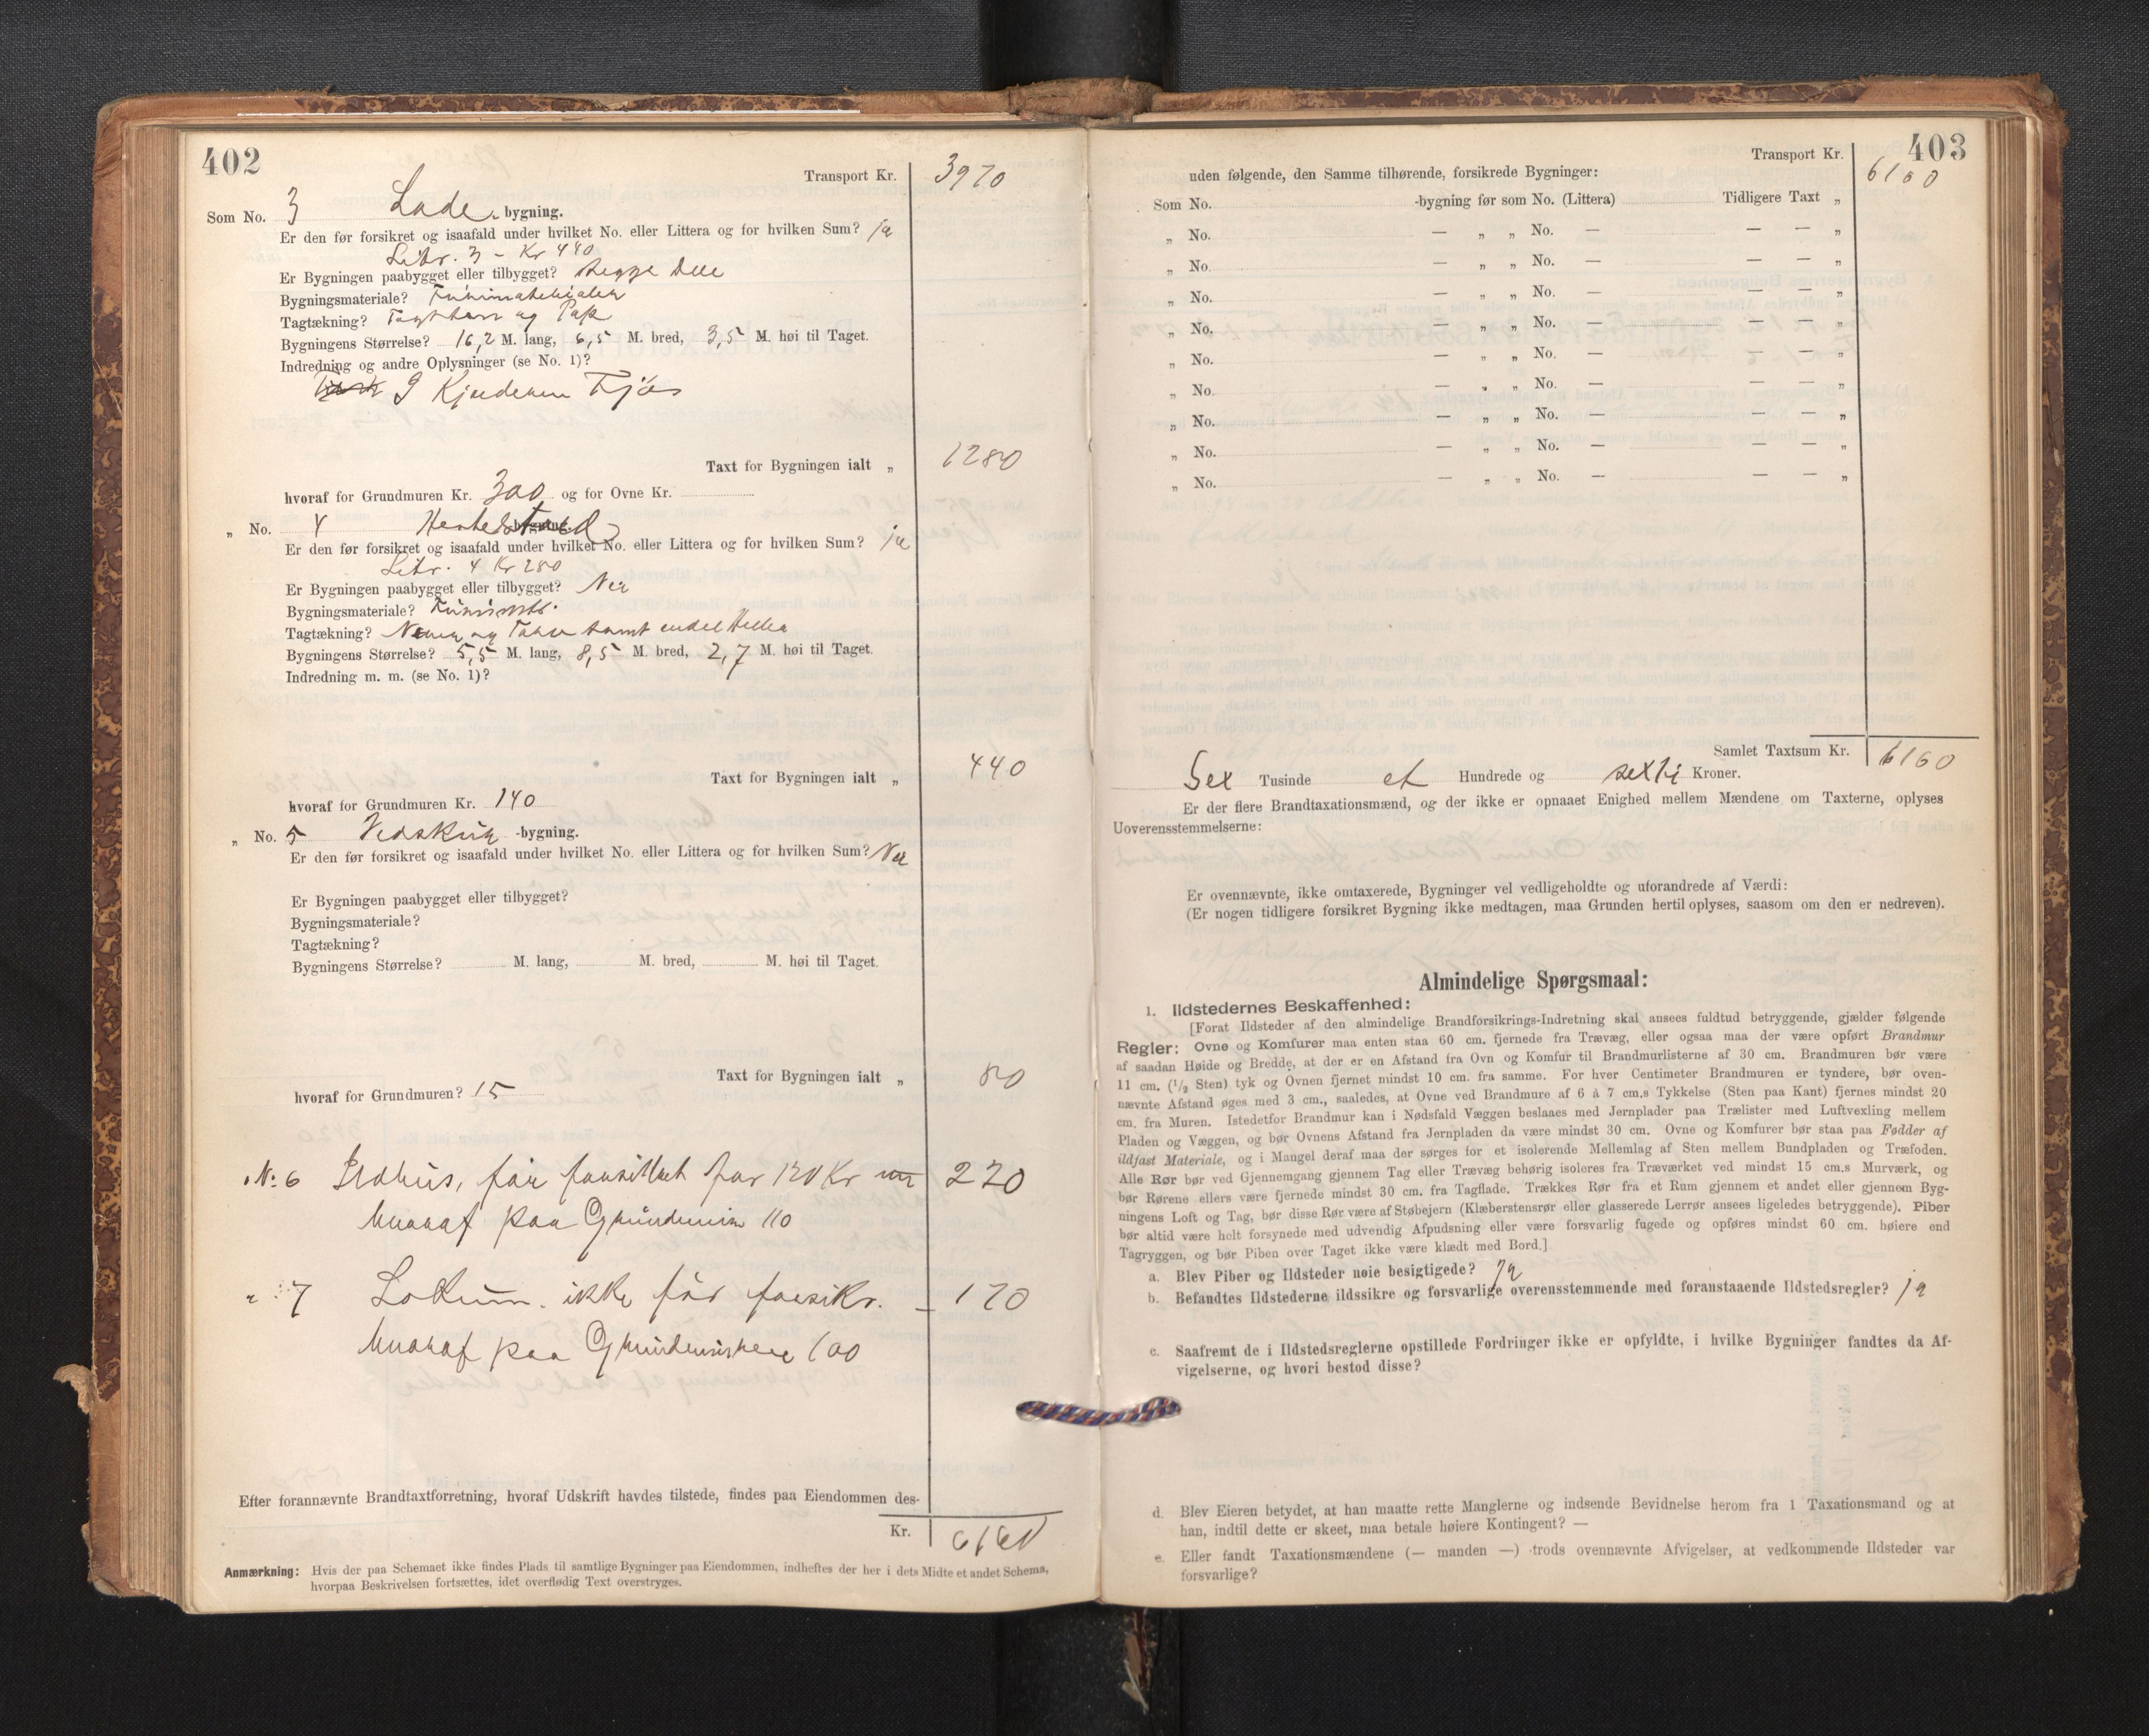 402
Transport Kr. 3970
Som No. 3 Lade bygning.
Er den før forsikret og isaafald under hvilket No. eller Littera og for hvilken Sum? ja
Litr. 3 - Kr 440
Er Bygningen paabygget eller tilbygget? begge dele
Bygningsmateriale? Furumaterialer
Tagtækning? og Pap
Bygningens Størrelse? 16,2 M. lang, 6,5 M. bred, 3,5 M. høi til Taget.
Indredning og andre Oplysninger (se No. 1)?
I Kjælderen Fjøs
Taxt for Bygningen ialt „ 1280
hvoraf for Grundmuren Kr. 300 og for Ovne Kr.
„ No. 4 Hestestald bygning.
Er den før forsikret og isaafald under hvilket No. eller Littera og for hvilken Sum? ja
Litr. 4 Kr 280
Er Bygningen paabygget eller tilbygget? Nei
Bygningsmateriale? Furumatr.
Tagtækning? Never og Torv samt endel Heller
Bygningens Størrelse? 5,5 M. lang, 8,5 M. bred, 2,7 M. høi til Taget.
Indredning m. m. (se No. 1)?
Taxt for Bygningen ialt „ 440
hvoraf for Grundmuren Kr. 140
„ No. 5 Vedskur -bygning.
Er den før forsikret og isaafald under hvilket No. eller Littera og for hvilken Sum? Nei
Er Bygningen paabygget eller tilbygget?
Bygningsmateriale?
Tagtækning?
Bygningens Størrelse? M. lang, M. bred, M. høi til Taget.
Taxt for Bygningen ialt „ 80
hvoraf for Grundmuren? 15
„ N: 6 Ildhus, før forsikret for 120 Kr nu 220
hvoraf paa Grundmur 110
„ 7 Lokum. ikke før forsikr. - 170
hvoraf paa Grundmuren 100
Efter forannævnte Brandtaxtforretning, hvoraf Udskrift havdes tilstede, findes paa Eiendommen des-
Kr. 6160
Anmærkning: Hvis der paa Schemaet ikke findes Plads til samtlige Bygninger paa Eiendommen, indheftes der her i dets Midte et andet Schema,
hvorpaa Beskrivelsen fortsættes, idet overflødig Text overstryges.
403
Transport Kr. 6160
uden følgende, den Samme tilhørende, forsikrede Bygninger:
Som No. -bygning før som No. (Littera) Tidligere Taxt „
„ No. — „ „ No. — — — „
„ No. — „ „ No. — — — „
„ No. — „ „ No. — — — „
„ No. — „ „ No. — — — „
„ No. — „ „ No. — — — „
„ No. — „ „ No. — — — „
„ No. — „ „ No. — — — „
„ No. — „ „ No. — — — „
„ No. — „ „ No. — — — „
Samlet Taxtsum Kr. 6160
Sex Tusinde et Hundrede og sexti Kroner.
Er der flere Brandtaxationsmænd, og der ikke er opnaaet Enighed mellem Mændene om Taxterne, oplyses
Uoverensstemmelserne:
Er ovennævnte, ikke omtaxerede, Bygninger vel vedligeholdte og uforandrede af Værdi:
(Er nogen tidligere forsikret Bygning ikke medtagen, maa Grunden hertil oplyses, saasom om den er nedreven).
Almindelige Spørgsmaal:
1. Ildstedernes Beskaffenhed:
[Forat Ildsteder af den almindelige Brandforsikrings-Indretning skal ansees fuldtud betryggende, gjælder følgende
Regler: Ovne og Komfurer maa enten staa 60 cm. fjernede fra Trævæg, eller ogsaa maa der være opført Brandmur
af saadan Høide og Bredde, at der er en Afstand fra Ovn og Komfur til Brandmurlisterne af 30 cm. Brandmuren bør være
11 cm. (1/2 Sten) tyk og Ovnen fjernet mindst 10 cm. fra samme. For hver Centimeter Brandmuren er tyndere, bør oven-
nævnte Afstand øges med 3 cm., saaledes, at Ovne ved Brandmure af 6 à 7 cm.s Tykkelse (Sten paa Kant) fjernes mindst 20
cm. fra Muren. Istedetfor Brandmur kan i Nødsfald Væggen beslaaes med Jernplader paa Trælister med Luftvexling mellem
Pladen og Væggen, og bør Ovnens Afstand fra Jernpladen da være mindst 30 cm. Ovne og Komfurer bør staa paa Fødder af
ildfast Materiale, og i Mangel deraf maa der sørges for et isolerende Mellemlag af Sten mellem Bundpladen og Træfoden.
Alle Rør bør ved Gjennemgang gjennem Tag eller Trævæg behørig isoleres fra Træværket ved mindst 15 cm.s Murværk, og
bør Rørene ellers være fjernede mindst 30 cm. fra Tagflade. Trækkes Rør fra et Rum gjennem et andet eller gjennem Byg-
ningens Loft og Tag, bør disse Rør være af Støbejern (Klæberstensrør eller glasserede Lerrør ansees ligeledes betryggende). Piber
bør altid være helt forsynede med udvendig Afpudsning eller være forsvarlig fugede og opføres mindst 60 cm. høiere end
Tagryggen, og bør Piben over Taget ikke være klædt med Bord.]
a. Blev Piber og Ildsteder nøie besigtigede? Ja
b. Befandtes Ildstederne ildssikre og forsvarlige overensstemmende med foranstaaende Ildstedsregler? ja
c. Saafremt de i Ildstedsreglerne opstillede Fordringer ikke er opfyldte, i hvilke Bygninger fandtes da Af-
vigelserne, og hvori bestod disse?
d. Blev Eieren betydet, at han maatte rette Manglerne og indsende Bevidnelse herom fra 1 Taxationsmand og at
han, indtil dette er skeet, maa betale høiere Kontingent? —
e. Eller fandt Taxationsmændene (— manden —) trods ovennævnte Afvigelser, at vedkommende Ildsteder var
forsvarlige?